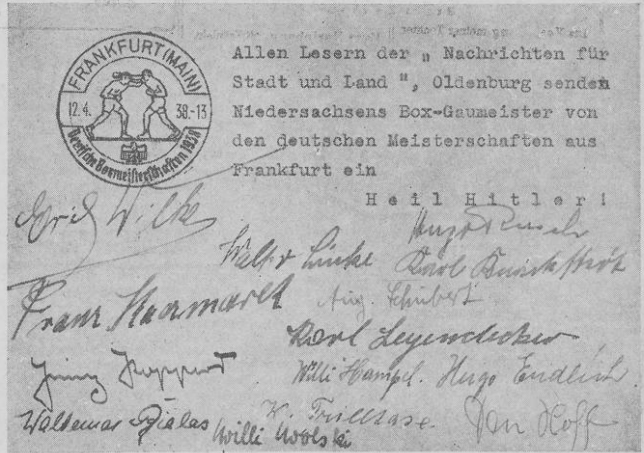 FRANKFURT (MAIN)
12.4. 38.-13
Deutsche Boxmeisterschaften 1938
Allen Lesern der „ Nachrichten für
Stadt und Land ", Oldenburg senden
Niedersachsens Box-Gaumeister von
den deutschen Meisterschaften aus
Frankfurt ein
Heil Hitler!
Wilke
Hugo
Walter Linke Karl
Franz Aug. Schubert
Karl Leyendecker
Willi Hampel. Hugo Endlich
Waldemar Bialas Willi K. Trittase. Hoff